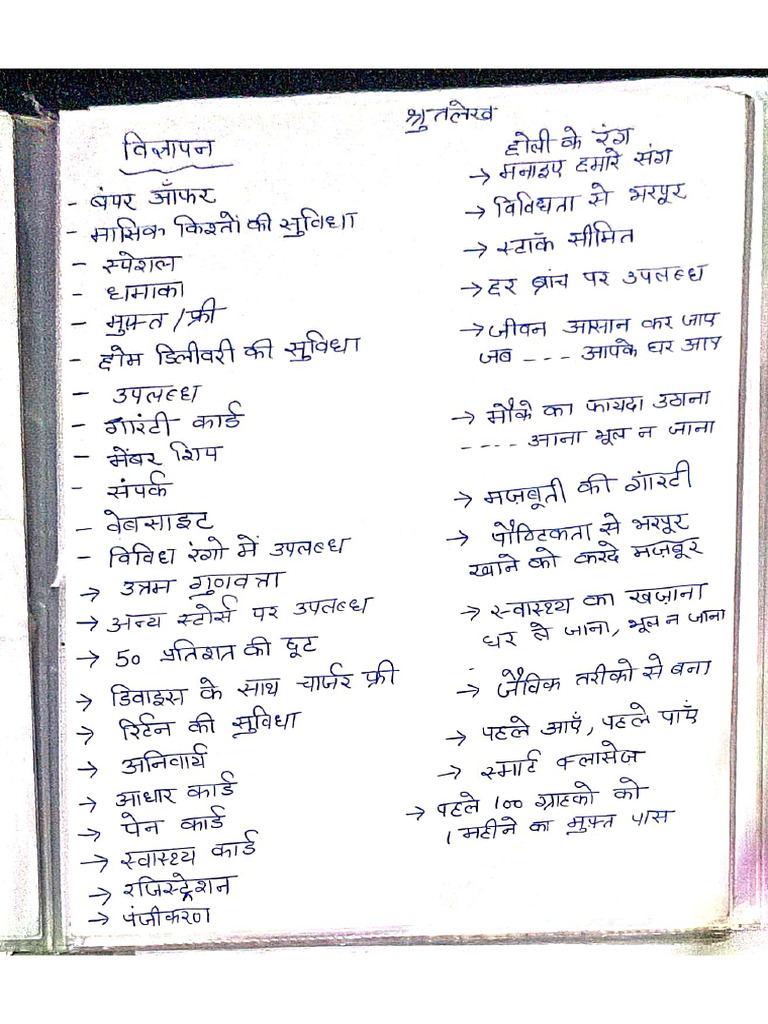 श्रुतलेख
विज्ञापन
- बंपर ऑफर
- मासिक किश्तों की सुविधा
- स्पेशल
- धमाका
- मुफ़्त / फ्री
- होम डिलीवरी की सुविधा
- उपलब्ध
- गारंटी कार्ड
- मेंबर शिप
- संपर्क
- वेबसाइट
- विविध रंगो में उपलब्ध
→ उत्तम गुणवत्ता
→ अन्य स्टोर्स पर उपलब्ध
→ 50 प्रतिशत की छूट
→ डिवाइस के साथ चार्जर फ्री
→ रिर्टन की सुविधा
→ अनिवार्य
→ आधार कार्ड
→ पेन कार्ड
→ स्वास्थ्य कार्ड
→ रजिस्ट्रेशन
→ पंजीकरण
होली के रंग
→ मनाइए हमारे संग
→ विविधता से भरपूर
→ स्टॉक सीमित
→ हर ब्रांच पर उपलब्ध
→ जीवन आसान कर जाए
जब ---- आपके घर आए
→ मौके का फायदा उठाना
---- आना भूल न जाना
→ मज़बूती की गांरटी
→ पौष्टिकता से भरपूर
खाने को करदे मज़बूर
→ स्वास्थ्य का खज़ाना
घर ले जाना, भूल न जाना
→ जैविक तरीको से बना
→ पहले आएँ, पहले पाएँ
→ स्मार्ट क्लासेज
→ पहले 100 ग्राहको को
1 महीने का मुफ़्त पास